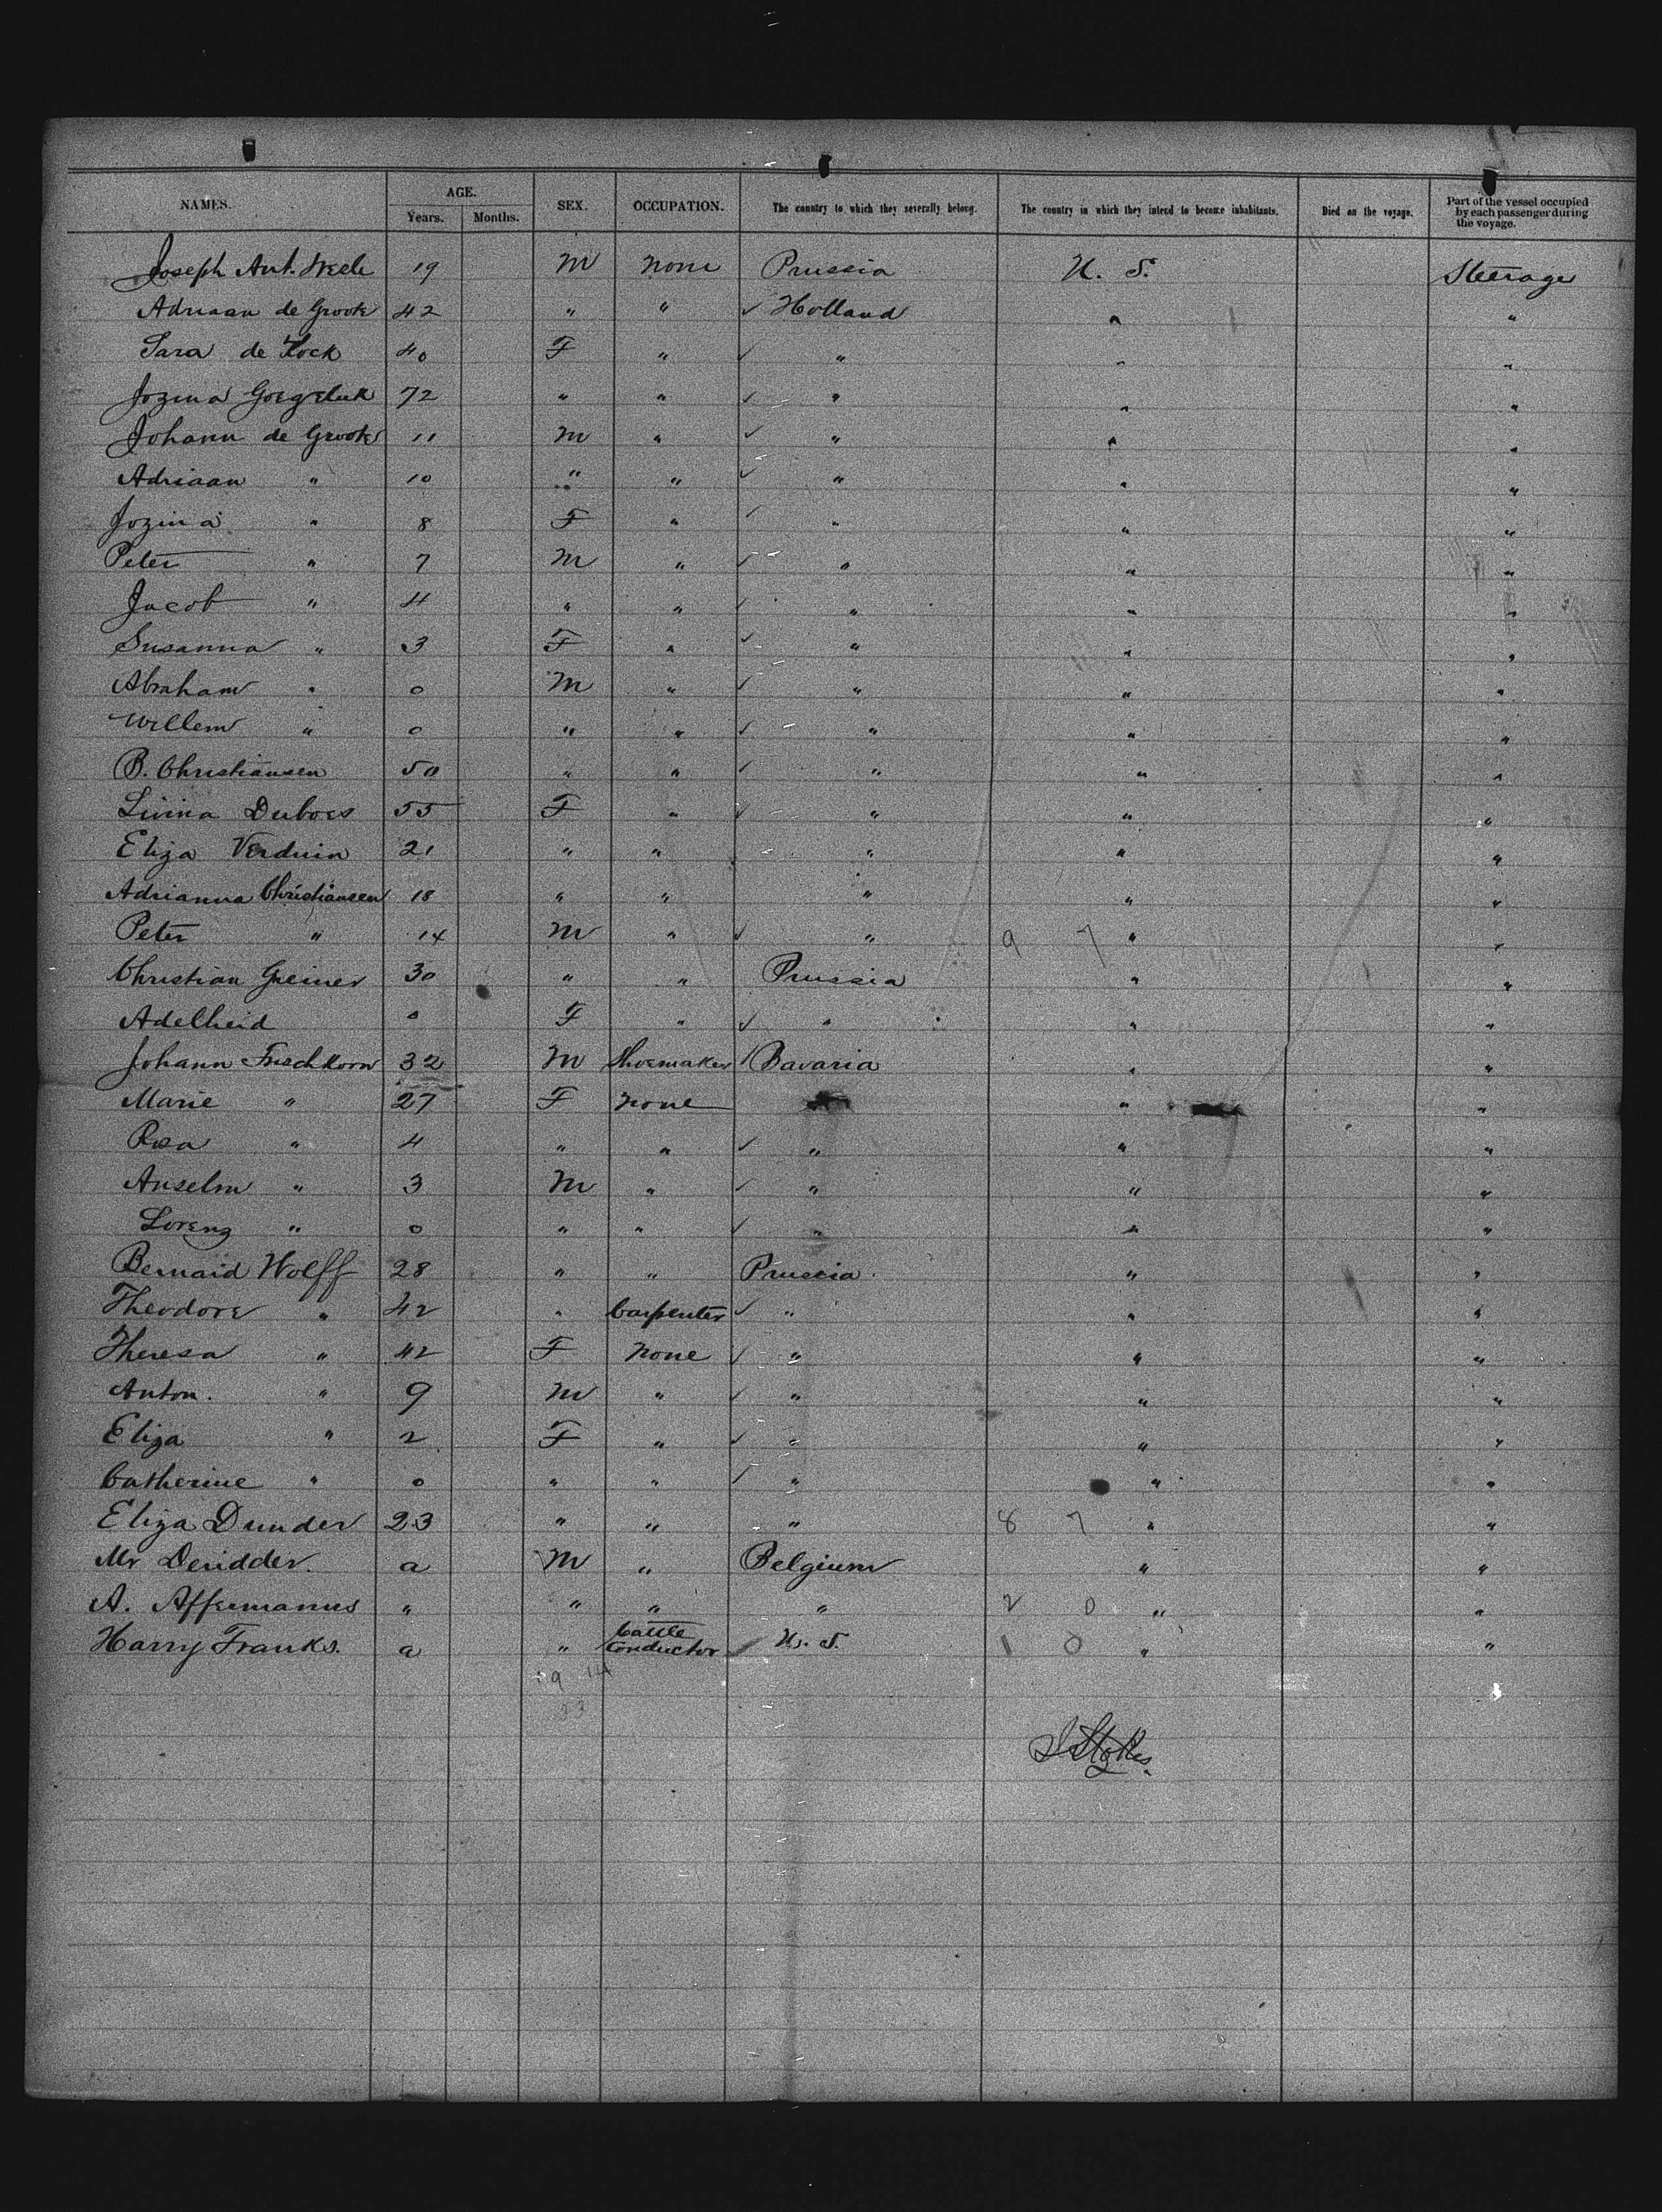 NAMES. AGE. SEX. OCCUPATION. The country to which they severally belong. The country in which they intend to become inhabitants. Died on the voyage. Part of the vessel occupied by each passenger during the voyage.
Years. Months.
Joseph Ant. 19 M None Prussia U. S. Steerage
Adriaan de Groote 42 " " ✓ Holland " "
Sara de Kock 40 F " ✓ " " "
Jozina 72 " " ✓ " " "
Johann de Groote 11 M " ✓ " " "
Adriaan " 10 " " ✓ " " "
Jozina " 8 F " ✓ " " "
Peter " 7 M " ✓ " " "
Jacob " 4 " " ✓ " " "
Susanna " 3 F " ✓ " " "
Abraham " 0 M " ✓ " " "
Willem " 0 " " ✓ " " "
B. Christiansen 50 " " ✓ " " "
Livina Duboes 55 F " ✓ " " "
Eliza Verduin 21 " " " " "
Adrianna Christiansen 18 " " " " "
Peter " 14 M " ✓ " 9 7 " "
Christian Greiner 30 " " Prussia " "
Adelheid 0 F " ✓ " " "
Johann Frischkorn 32 M Shoemaker ✓ Bavaria " "
Marie " 27 F None " "
Rosa " 4 " " ✓ " " "
Anselm " 3 M " ✓ " " "
Lorenz " 0 " " ✓ " " "
Bernard Wolff 28 " " Prussia " "
Theodore " 42 " Carpenter ✓ " " "
Theresa " 42 F None ✓ " " "
Anton. " 9 M " ✓ " " "
Eliza " 2 F " ✓ " " "
Catherine " 0 " " ✓ " " "
Eliza Dunder 23 " " " 8 7 " "
Mr Deridder. a M " Belgium " "
A. Affermannes " " " " 2 0 " "
Harry Franks. a " Cattle Conductor ✓ U. S. 1 0 " "
19 14
33
J Stokes.